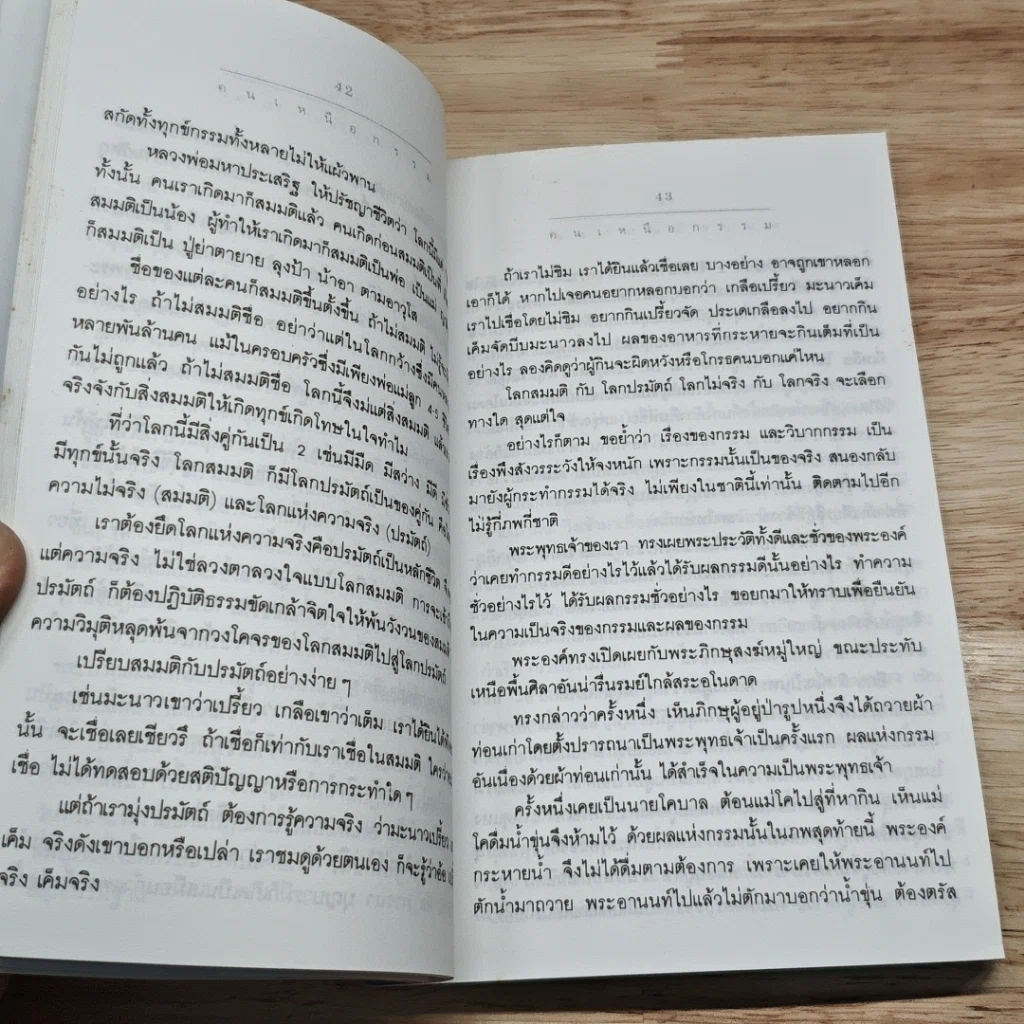 42
คนเหนือกรรม
สกัดทั้งทุกข์กรรมทั้งหลายไม่ให้แผ้วพาน
หลวงพ่อมหาประเสริฐ ให้ปรัชญาชีวิตว่า โลกนี้
ทั้งนั้น คนเราเกิดมาก็สมมติแล้ว คนเกิดก่อนสมมติเป็นพี่
สมมติเป็นน้อง ผู้ทำให้เราเกิดมาก็สมมติเป็นพ่อ เป็นแม่
ก็สมมติเป็น ปู่ย่าตายาย ลุงป้า น้าอา ตามอาวุโส
ชื่อของแต่ละคนก็สมมติขึ้นตั้งขึ้น ถ้าไม่สมมติ
อย่างไร ถ้าไม่สมมติชื่อ อย่าว่าแต่ในโลกกว้างซึ่งมี
หลายพันล้านคน แม้ในครอบครัวซึ่งมีเพียงพ่อแม่ลูก 4-5
กันไม่ถูกแล้ว ถ้าไม่สมมติชื่อ โลกนี้จึงมีแต่สิ่งสมมติ
จริงจังกับสิ่งสมมติให้เกิดทุกข์เกิดโทษในใจทำไม
ที่ว่าโลกนี้มีสิ่งคู่กันเป็น 2 เช่นมีมืด มีสว่าง มีดี
มีทุกข์นั้นจริง โลกสมมติ ก็มีโลกปรมัตถ์เป็นของคู่กัน
ความไม่จริง (สมมติ) และโลกแห่งความจริง (ปรมัตถ์)
เราต้องยึดโลกแห่งความจริงคือปรมัตถ์เป็นหลักชีวิต
แต่ความจริง ไม่ใช่ลวงตาลวงใจแบบโลกสมมติ การจะเข้า
ปรมัตถ์ ก็ต้องปฏิบัติธรรมขัดเกล้าจิตใจให้พ้นวังวนของ
ความวิมุติหลุดพ้นจากวงโคจรของโลกสมมติไปสู่โลกปรมัตถ์
เปรียบสมมติกับปรมัตถ์อย่างง่าย ๆ
เช่นมะนาวเขาว่าเปรี้ยว เกลือเขาว่าเค็ม เราได้ยิน
นั้น จะเชื่อเลยเชียวรึ ถ้าเชื่อก็เท่ากับเราเชื่อในสมมติ
เชื่อ ไม่ได้ทดสอบด้วยสติปัญญาหรือการกระทำใด ๆ
แต่ถ้าเรามุ่งปรมัตถ์ ต้องการรู้ความจริง ว่ามะนาวเปรี้ยว
เค็ม จริงดังเขาบอกหรือเปล่า เราชมดูด้วยตนเอง ก็จะรู้ว่า
จริง เค็มจริง
43
คนเหนือกรรม
ถ้าเราไม่ชิม เราได้ยินแล้วเชื่อเลย บางอย่าง อาจถูกเขาหลอก
เอาก็ได้ หากไปเจอคนอยากหลอกบอกว่า เกลือเปรี้ยว มะนาวเค็ม
เราไปเชื่อโดยไม่ชิม อยากกินเปรี้ยวจัด ประเดเกลือลงไป อยากกิน
เค็มจัดบีบมะนาวลงไป ผลของอาหารที่กระหายจะกินเต็มที่เป็น
อย่างไร ลองคิดดูว่าผู้กินจะผิดหวังหรือโกรธคนบอกแค่ไหน
โลกสมมติ กับ โลกปรมัตถ์ โลกไม่จริง กับ โลกจริง จะเลือก
ทางใด สุดแต่ใจ
อย่างไรก็ตาม ขอย้ำว่า เรื่องของกรรม และวิบากกรรม เป็น
เรื่องพึงสังวรระวังให้จงหนัก เพราะกรรมนั้นเป็นของจริง สนองกลับ
มายังผู้กระทำกรรมได้จริง ไม่เพียงในชาตินี้เท่านั้น ติดตามไปอีก
ไม่รู้กี่ภพกี่ชาติ
พระพุทธเจ้าของเรา ทรงเผยพระประวัติทั้งดีและชั่วของพระองค์
ว่าเคยทำกรรมดีอย่างไรไว้แล้วได้รับผลกรรมดีนั้นอย่างไร ทำความ
ชั่วอย่างไรไว้ ได้รับผลกรรมชั่วอย่างไร ขอยกมาให้ทราบเพื่อยืนยัน
ในความเป็นจริงของกรรมและผลของกรรม
พระองค์ทรงเปิดเผยกับพระภิกษุสงฆ์หมู่ใหญ่ ขณะประทับ
เหนือพื้นศิลาอันน่ารื่นรมย์ใกล้สระอโนดาด
ทรงกล่าวว่าครั้งหนึ่ง เห็นภิกษุผู้อยู่ป่ารูปหนึ่งจึงได้ถวายผ้า
ท่อนเก่าโดยตั้งปรารถนาเป็นพระพุทธเจ้าเป็นครั้งแรก ผลแห่งกรรม
อันเนื่องด้วยผ้าท่อนเก่านั้น ได้สำเร็จในความเป็นพระพุทธเจ้า
ครั้งหนึ่งเคยเป็นนายโคบาล ต้อนแม่โคไปสู่ที่หากิน เห็นแม่
โคดื่มน้ำขุ่นจึงห้ามไว้ ด้วยผลแห่งกรรมนั้นในภพสุดท้ายนี้ พระองค์
กระหายน้ำ จึงไม่ได้ดื่มตามต้องการ เพราะเคยให้พระอานนท์ไป
ตักน้ำมาถวาย พระอานนท์ไปแล้วไม่ตักมาบอกว่าน้ำขุ่น ต้องตรัส